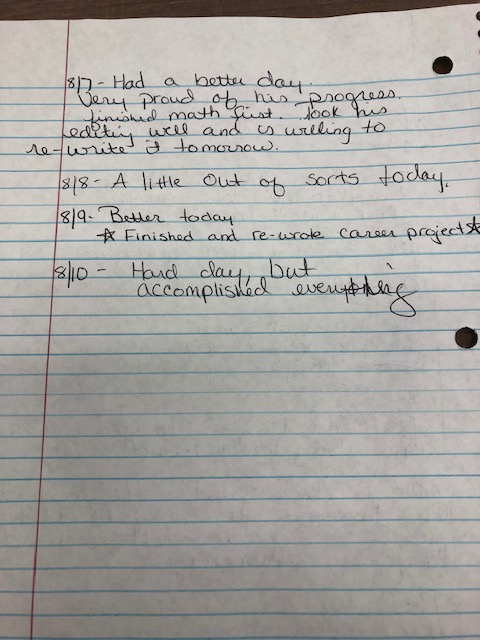 8/7 - Had a better day.
Very proud of his progress.
finished math first. Took his
editing well and is willing to
re-write it tomorrow.
8/8 - A little out of sorts today.
8/9 - Better today
☆ Finished and re-wrote career project ☆
8/10 - Hard day, but
accomplished everything